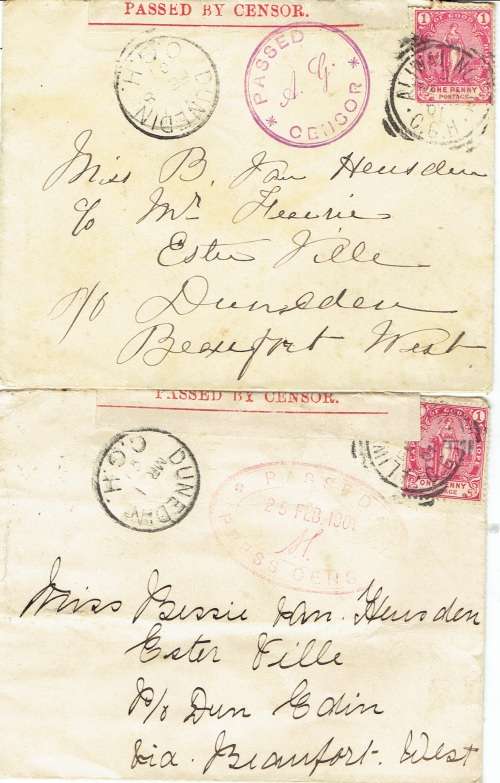 PASSED BY CENSOR.
DUNEDIN
C.G.H.
PASSED
CENSOR
1 1
OF GOOD
ONE PENNY
POSTAGE
ALIWAL N
01
C.G.H.
Miss B. Van Heusden
c/o Mr
Ester Ville
P/O Dunedin
Beaufort West.
PASSED BY CENSOR.
DUNEDIN
C.G.H.
MR 1
PASSED
25 FEB. 1901
PRESS CENS
1
OF GOOD
ONE PENNY
Miss Bessie van Heusden
Ester Ville
P/o Dun Edin
via. Beaufort. West